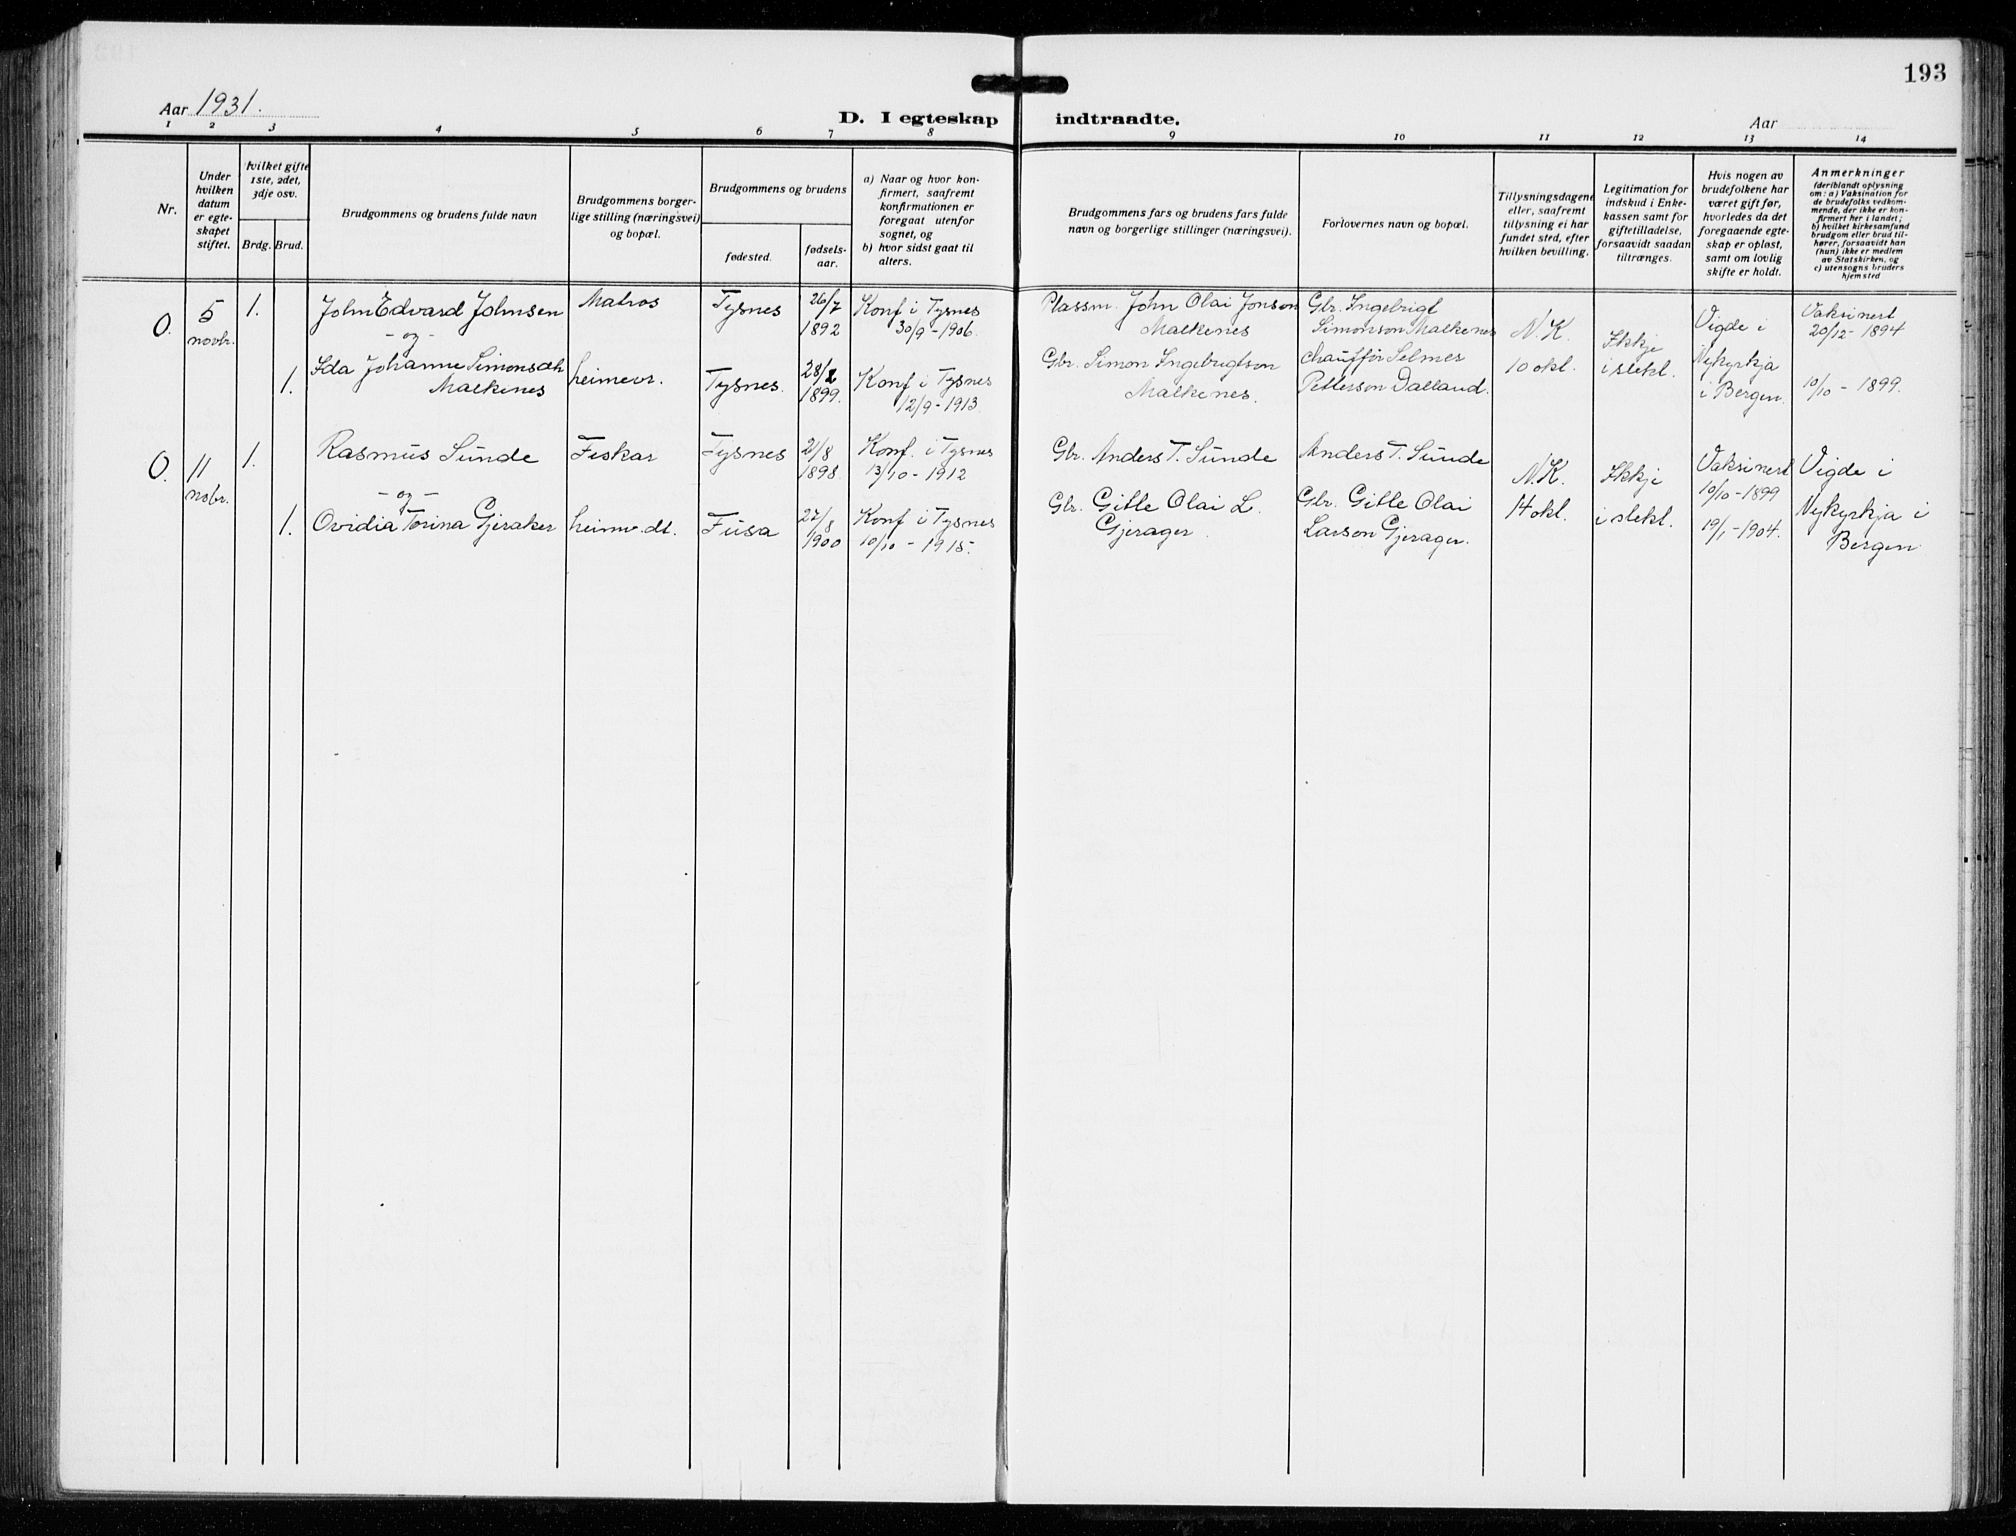 193
Aar 1931.
D. I egteskap indtraadte.
Aar
1 2 3 4 5 6 7 8 9 10 11 12 13 14
Nr.
Under
hvilken
datum
er egte-
skapet
stiftet.
Hvilket gifte
1ste, 2det,
3dje osv.
Brdg. Brud.
Brudgommens og brudens fulde navn
Brudgommens borger-
lige stilling (næringsvei)
og bopæl.
Brudgommens og brudens
fødested.
fødsels-
aar.
a) Naar og hvor kon-
firmert, saafremt
konfirmationen er
foregaat utenfor
sognet, og
b) hvor sidst gaat til
alters.
Brudgommens fars og brudens fars fulde
navn og borgerlige stillinger (næringsvei).
Forlovernes navn og bopæl.
Tillysningsdagene
eller, saafremt
tillysning ei har
fundet sted, efter
hvilken bevilling.
Legitimation for
indskud i Enke-
kassen samt for
giftetilladelse,
forsaavidt saadan
tiltrænges.
Hvis nogen av
brudefolkene har
været gift før,
hvorledes da det
foregaaende egte-
skap er opløst,
samt om lovlig
skifte er holdt.
Anmerkninger
(deriblandt oplysning
om: a) Vaksination for
de brudefolks vedkom-
mende, der ikke er kon-
firmert her i landet;
b) hvilket kirkesamfund
brudgom eller brud til-
hører, forsaavidt han
(hun) ikke er medlem
av Statskirken, og
c) utensogns bruders
hjemsted
O.
5
novbr.
1.
John Edvard Johnsen
- og -
Matros
Tysnes
26/7
1892
Konf i Tysnes
30/9 - 1906.
Plassm. John Olai Jonson
Malkenes
Gbr. Ingebrigt
Simonson Malkenes
N.K.
10 okt.
Ikkje
i slekt.
Vigde i
Nykyrkja
i Bergen.
Vaksinert
20/12 - 1894
1.
Ida Johanne Simonsdtr
Malkenes
heimevr.
Tysnes.
28/2
1899.
Konf i Tysnes
12/9 - 1913.
Gbr. Simon Ingebrigtson
Malkenes.
Chauffør Selmer
Petterson Dalland.
10/10 - 1899.
O.
11
nobr.
1.
Rasmus Sunde
- og -
Fiskar
Tysnes
21/8
1898.
Konf. i Tysnes
13/10 - 1912
Gbr. Anders T. Sunde
Anders T. Sunde
N.K.
14 okt.
Ikkje
i slekt.
Vaksinert
10/10 - 1899
19/1 - 1904.
Vigde i
Nykyrkja i
Bergen
1.
Ovidia Torina Gjeraker
heimv. dt.
Fusa
27/8
1900
Konf i Tysnes
10/10 - 1915.
Gbr. Gitle Olai L.
Gjerager.
Gbr. Gitle Olai
Larson Gjerager.